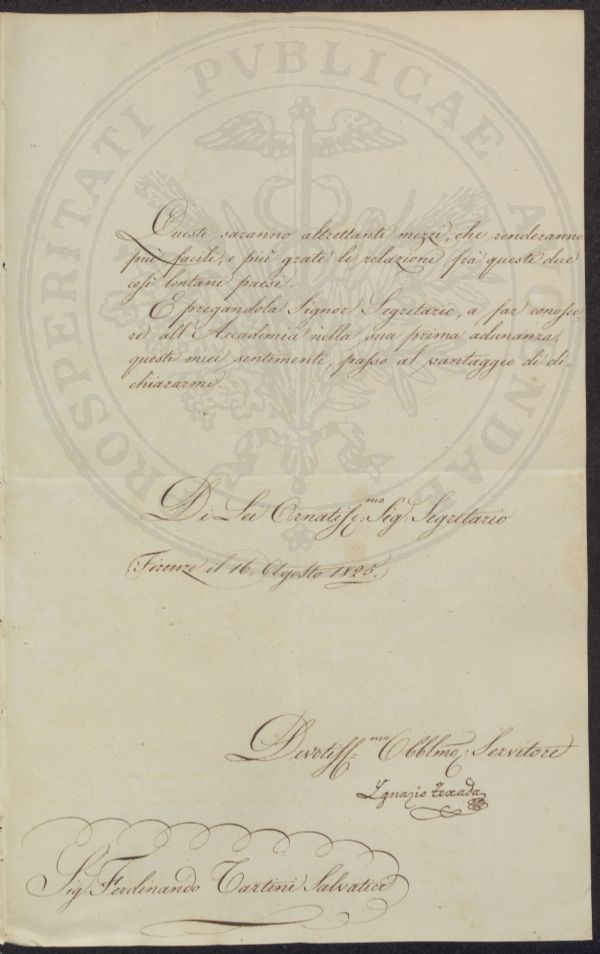 PROSPERITATI PVBLICAE AVGENDAE
Queste saranno altrettanti mezzi, che renderanno
più facili, e più grate le relazioni frà queste due
così lontani paesi.
E pregandola Signor Segretario, a far conosce-
re all'Accademia nella sua prima adunanza,
questi miei sentimenti, passo al vantaggio di di-
chiararmi.
Di Lei Ornatiss:mo Sig.r Segretario
Firenze il 16. Agosto 1825.
Devotiss:mo Obblmo: Servitore
Ygnazio Texada
Sig.r Ferdinando Tartini Salvatici